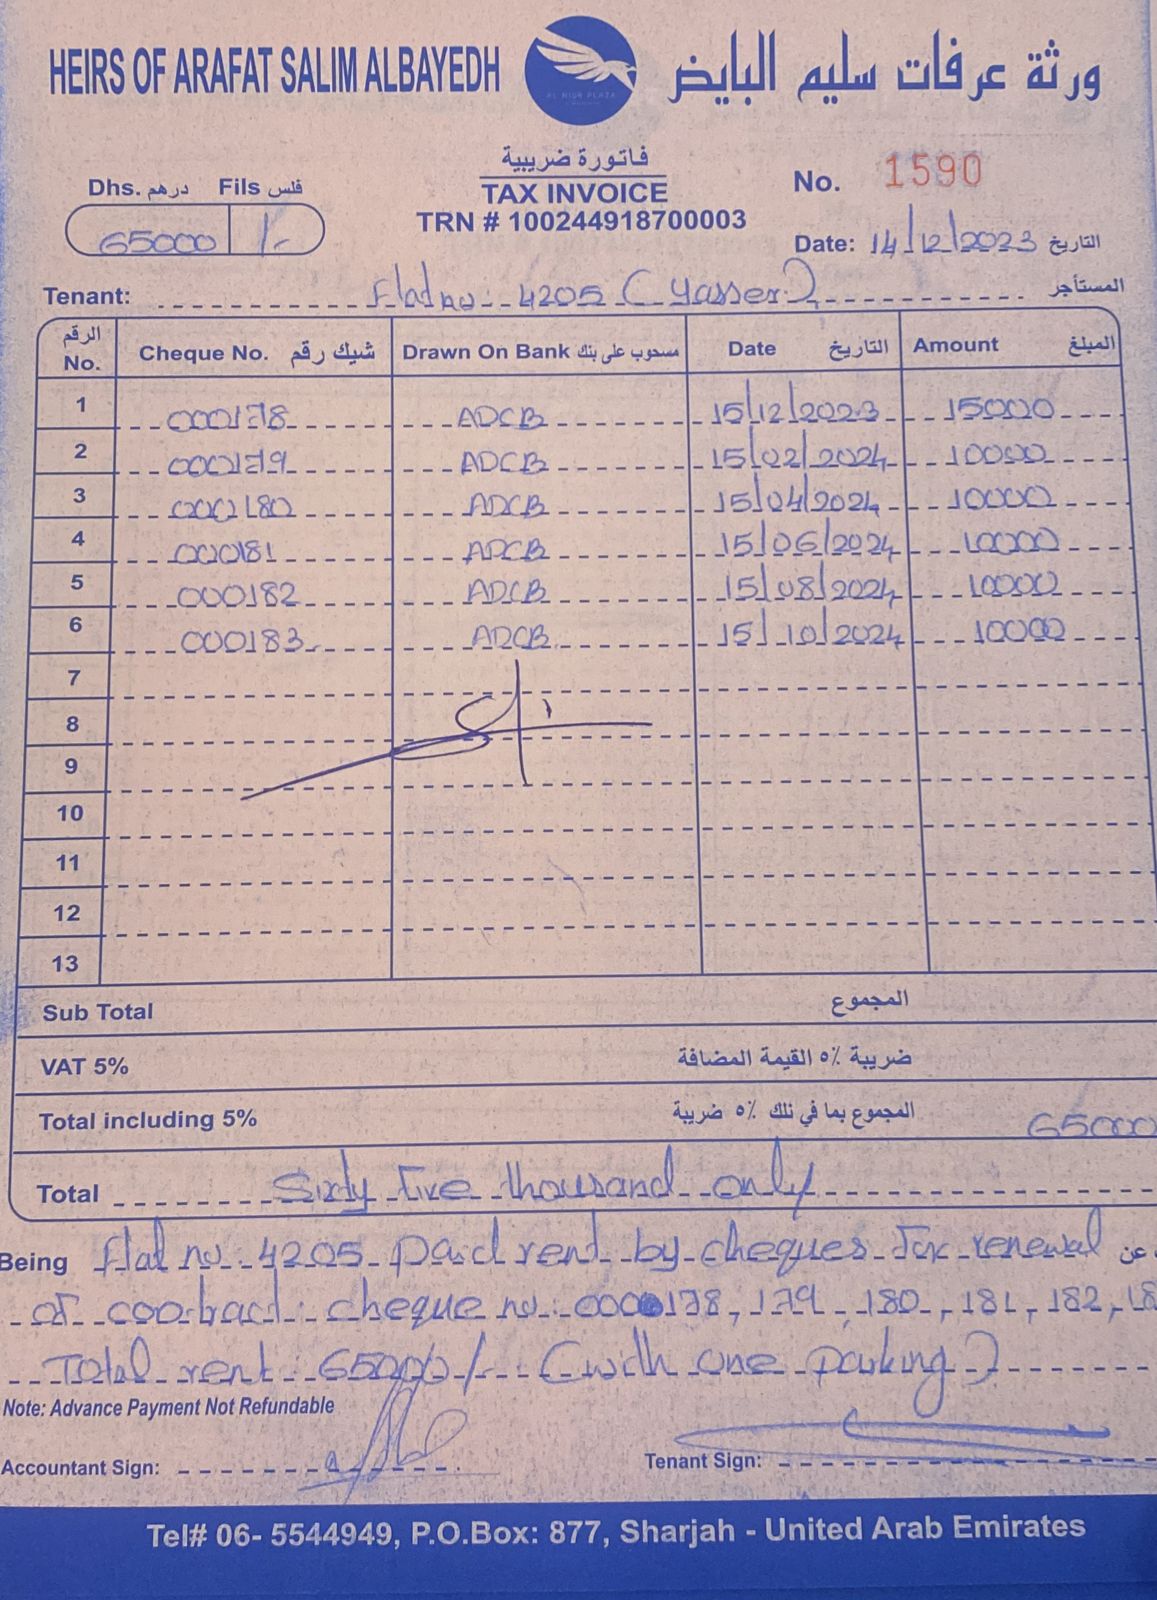 HEIRS OF ARAFAT SALIM ALBAYEDH
ورثة عرفات سليم البايض
AL NISR PLAZA
فاتورة ضريبية
TAX INVOICE
TRN # 100244918700003
Dhs. درهم Fils فلس
65000 /-
No. 1590
Date: 14/12/2023 التاريخ
Tenant: Flat no: 4205 (Yasser) المستأجر
الرقم No. Cheque No. شيك رقم Drawn On Bank مسحوب على بنك Date التاريخ Amount المبلغ
1 000178 ADCB 15/12/2023 15000
2 000179 ADCB 15/02/2024 10000
3 000180 ADCB 15/04/2024 10000
4 000181 ADCB 15/06/2024 10000
5 000182 ADCB 15/08/2024 10000
6 000183 ADCB 15/10/2024 10000
7
8
9
10
11
12
13
Sub Total المجموع
VAT 5% ضريبة ٥٪ القيمة المضافة
Total including 5% المجموع بما في تلك ٥٪ ضريبة 65000
Total Sixty five thousand only
Being Flat no: 4205 paid rent by cheques for renewal عن
of contract: cheque no: 000178, 179, 180, 181, 182, 18
Total rent: 65000/- (with one parking)
Note: Advance Payment Not Refundable
Accountant Sign: Tenant Sign:
Tel# 06- 5544949, P.O.Box: 877, Sharjah - United Arab Emirates